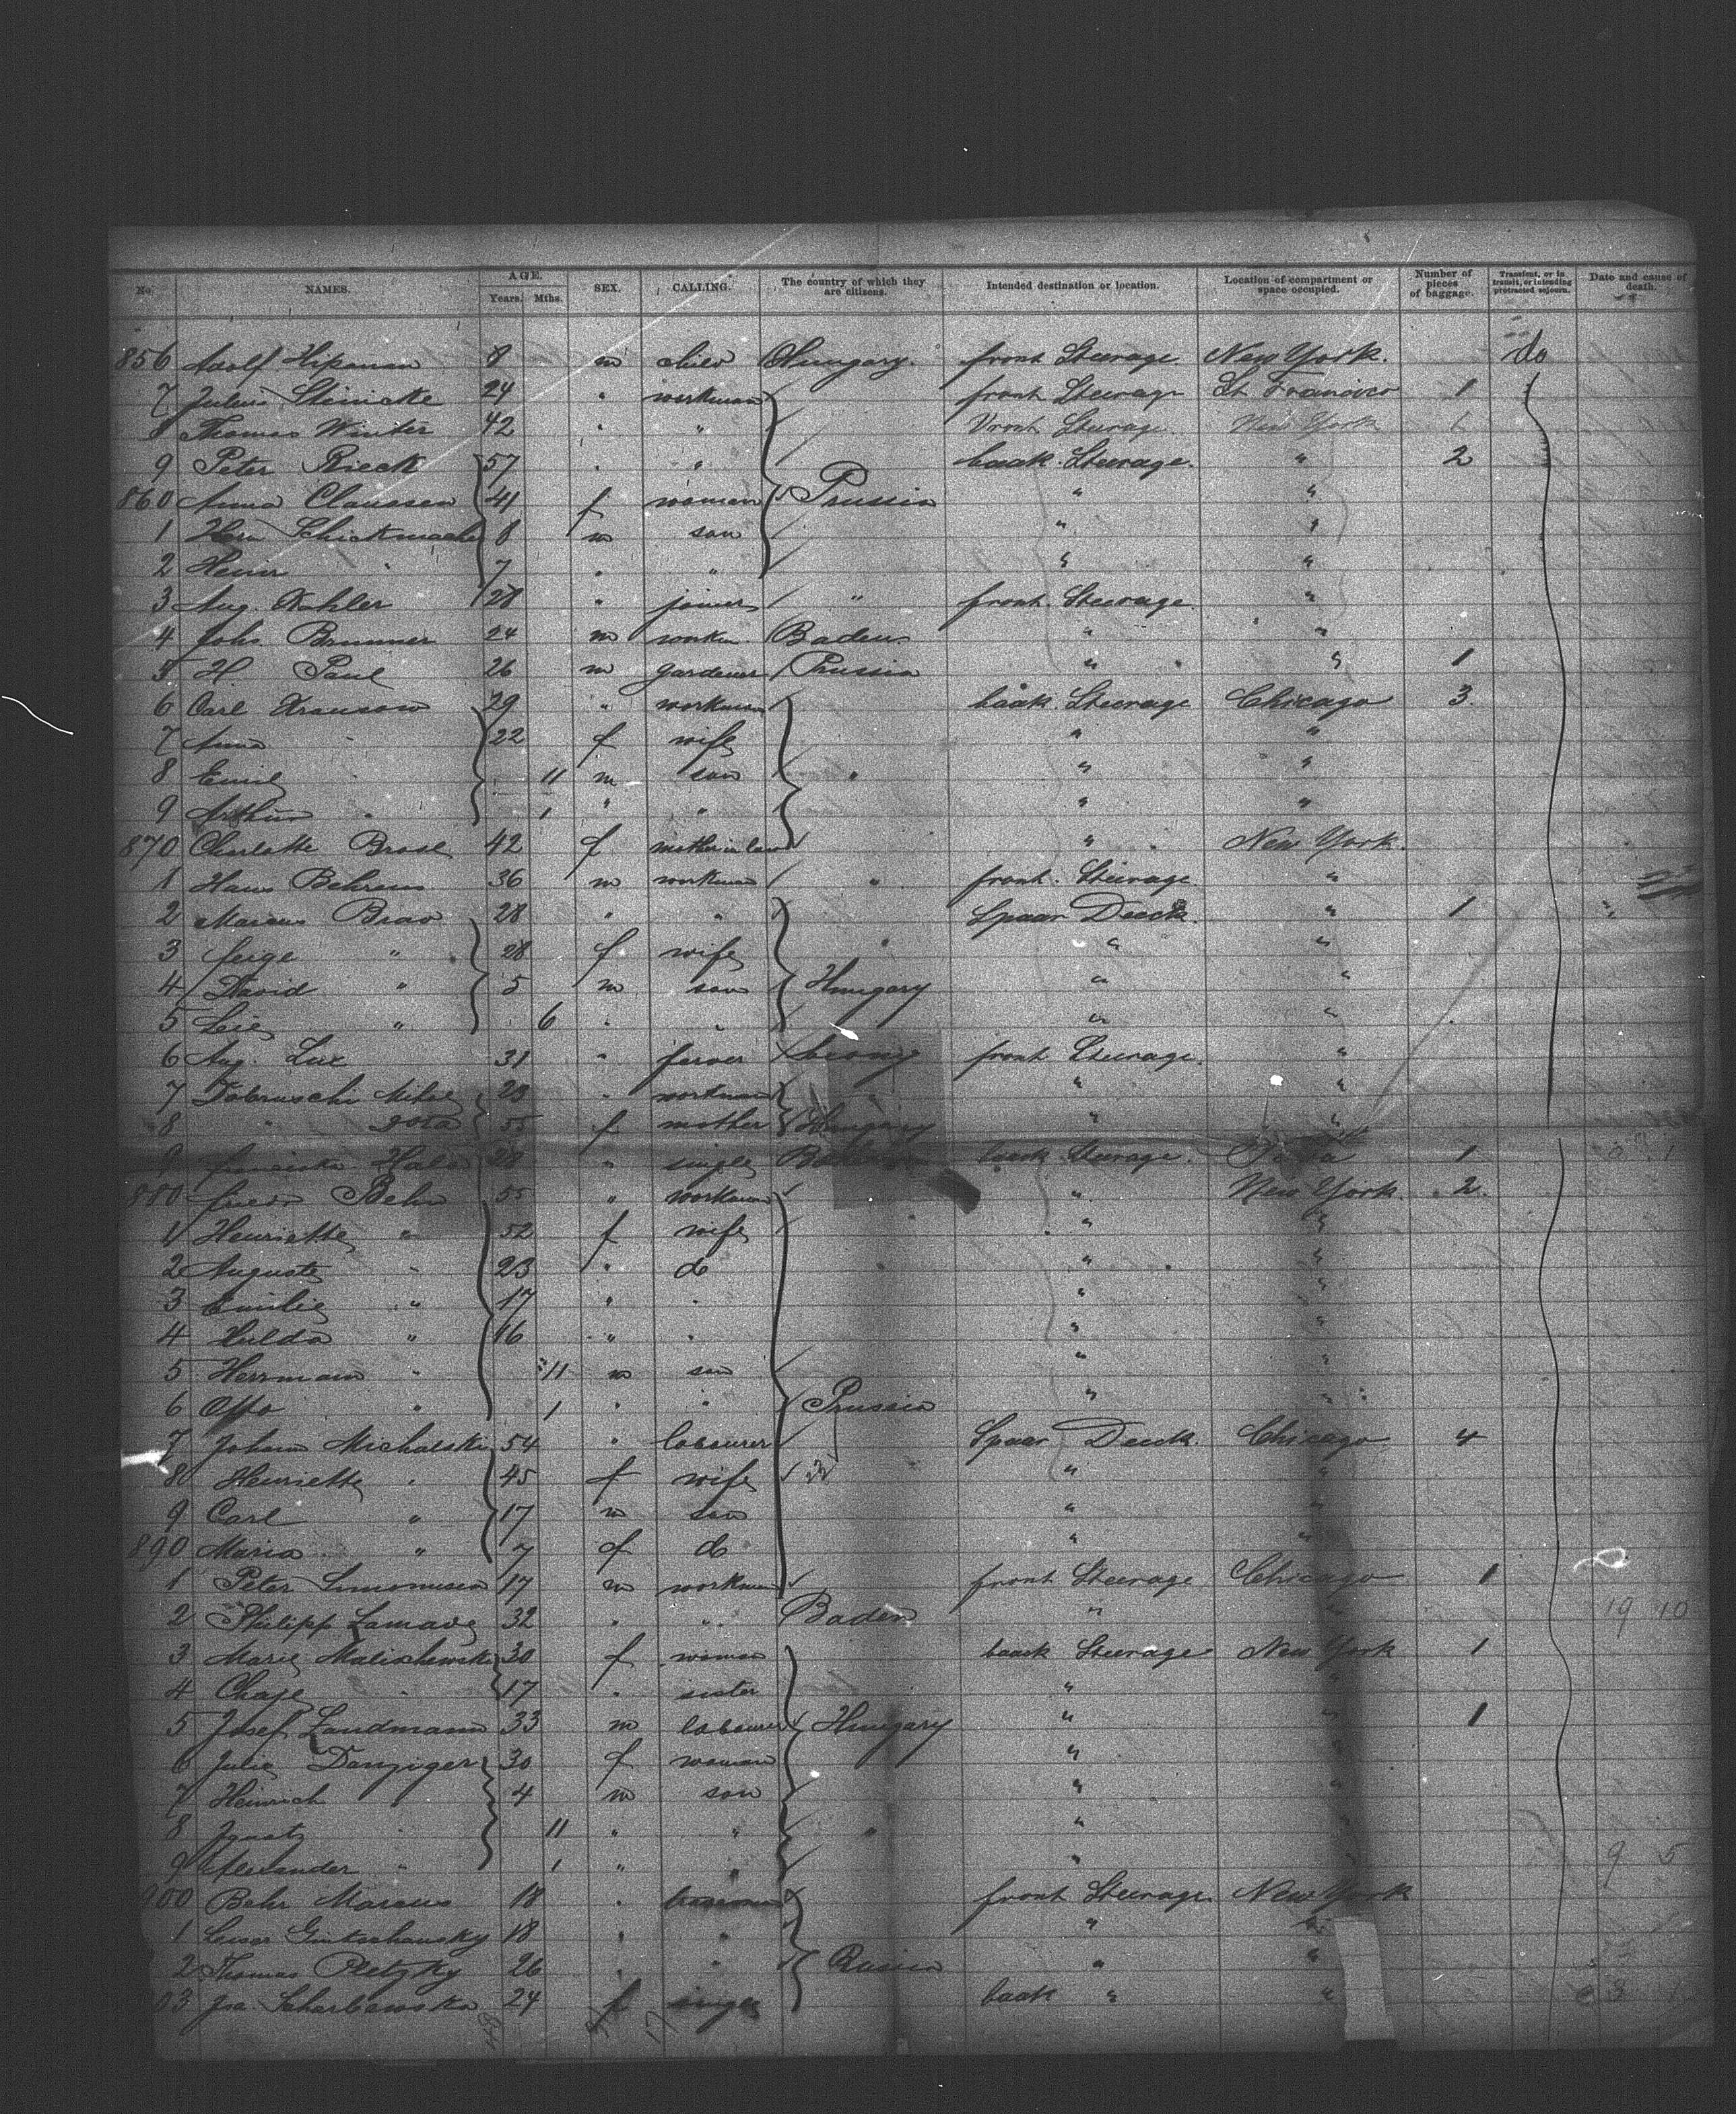 No. NAMES. AGE. Years. Mths. SEX. CALLING. The country of which they are citizens. Intended destination or location. Location of compartment or space occupied. Number of pieces of baggage. Transient, or in transit, or intending protracted sojourn. Date and cause of death.
856 Adolf 8 m child Hungary. front Steerage. New York. do
7 Julius Steinicke 24 " workman front Steerage St Francisco 1
8 Thomas Winter 42 " " Front Steerage New York 1
9 Peter Rieck 57 " " baak Steerage. " 2
860 Anna Claussen 41 f woman Prussia " "
1 Herm Schickmache 8 m son " "
2 Heinr " 7 " " " "
3 Aug. Kohler 28 " joiner " front Steerage "
4 Johs Brunner 24 m workm. Baden " "
5 H Paul 26 m gardener Prussia " " 1
6 Carl Kransow 29 " workman baak Steerage Chicago 3
7 Anna " 22 f wife " "
8 Emil " 11 m son " " "
9 Arthur " 1 " " " "
870 Charlotte Brasl 42 f mother in law " New York.
1 Hans Behrens 36 m workman " front Steerage "
2 Marcus Brav 28 " " Spaar Deeck. " 1
3 feige " 28 f wife " "
4 David " 5 m son Hungary " "
5 Leie " 6 " " " "
6 Aug. Lux 31 " front Steerage. "
7 Dobruschi 23 " workman " "
8 " 55 f mother Hungary " "
9 28 " single baak Steerage. 1
880 friedr Behn 55 " workman " New York. 2.
1 Henriette " 52 f wife " "
2 Auguste " 23 " do " "
3 Emilie " 17 " " " "
4 Hulda " 16 " " " "
5 Herrmann " 11 m son " "
6 Otto " 1 " " Prussia " "
7 Johann Michalski 54 " labourer Spaar Deeck. Chicago 4
8 Henriette " 45 f wife " "
9 Carl " 17 m son " "
890 Maria " 7 f do " "
1 Peter Simonusen 17 m workman front Steerage Chicago 1
2 Philipp Lamade 32 " " Baden " " 19 10
3 Marie Malischewski 30 f woman baak Steerage New York 1
4 Chaje " 17 " sister " "
5 Josef Landmann 33 m labourer Hungary " " 1
6 Julie Danziger 30 f woman " "
7 Heinrich " 4 m son " "
8 Ignatz " 11 " " " " "
9 Alexander " 1 " " " " 9 5
900 Behr Marcus 18 " front Steerage New York
1 Leiser Gutschausky 18 " " " "
2 Thomas Pletzky 26 " " Russia " "
03 Scharbowska 24 f single baak " " 3 1